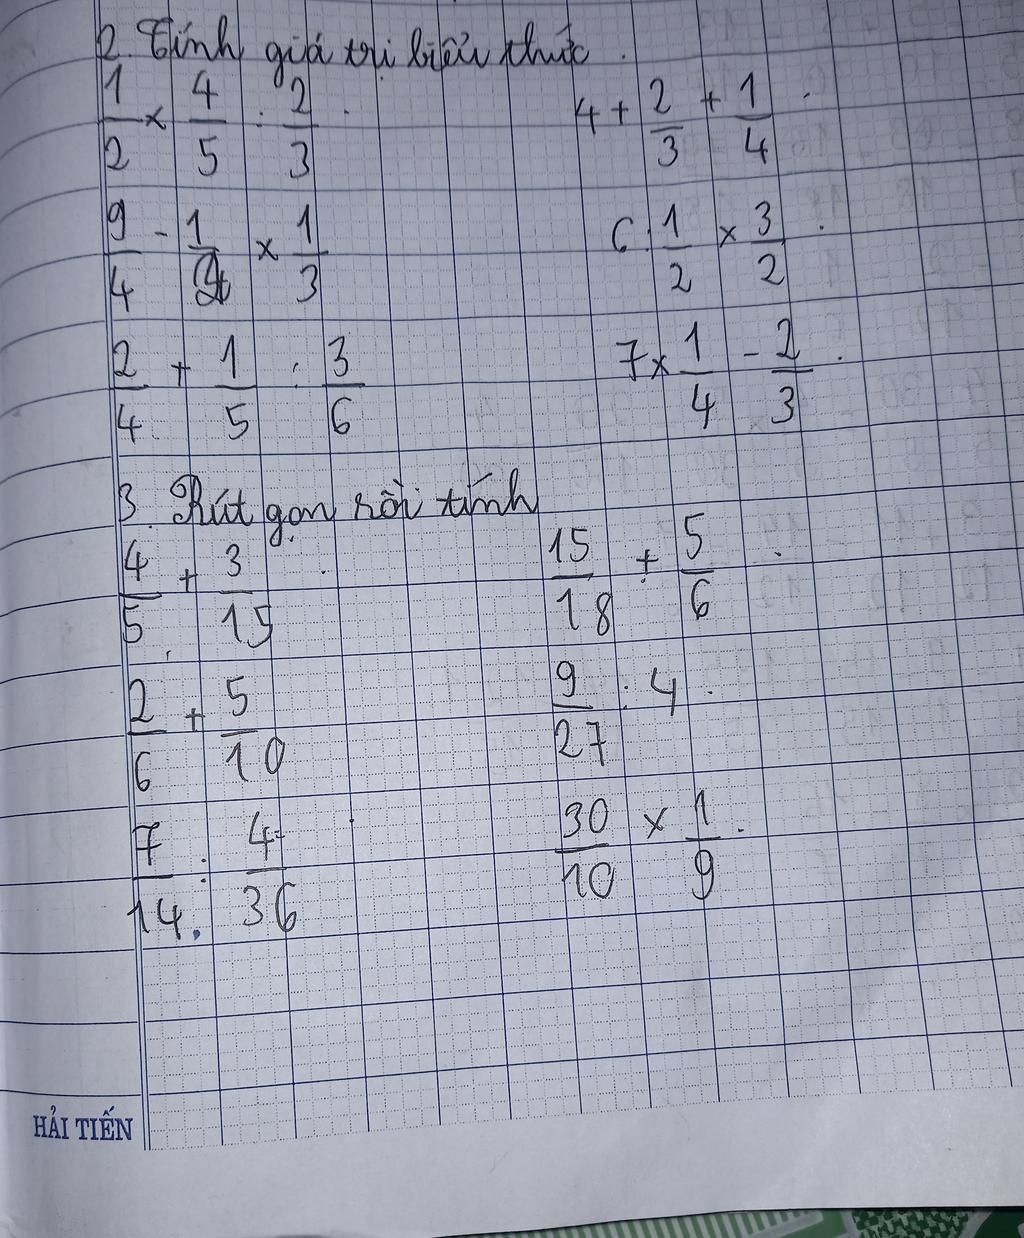 2. Tính giá trị biểu thức.
1/2 × 4/5 : 2/3 . 4 + 2/3 + 1/4 .
9/4 - 1/2 × 1/3 6 : 1/2 × 3/2 .
2/4 + 1/5 : 3/6 7 × 1/4 - 2/3 .
3. Rút gọn rồi tính
4/5 + 3/15 . 15/18 + 5/6 .
2/6 + 5/10 9/27 : 4 .
7/14 : 4/36 30/10 × 1/9 .
HẢI TIẾN